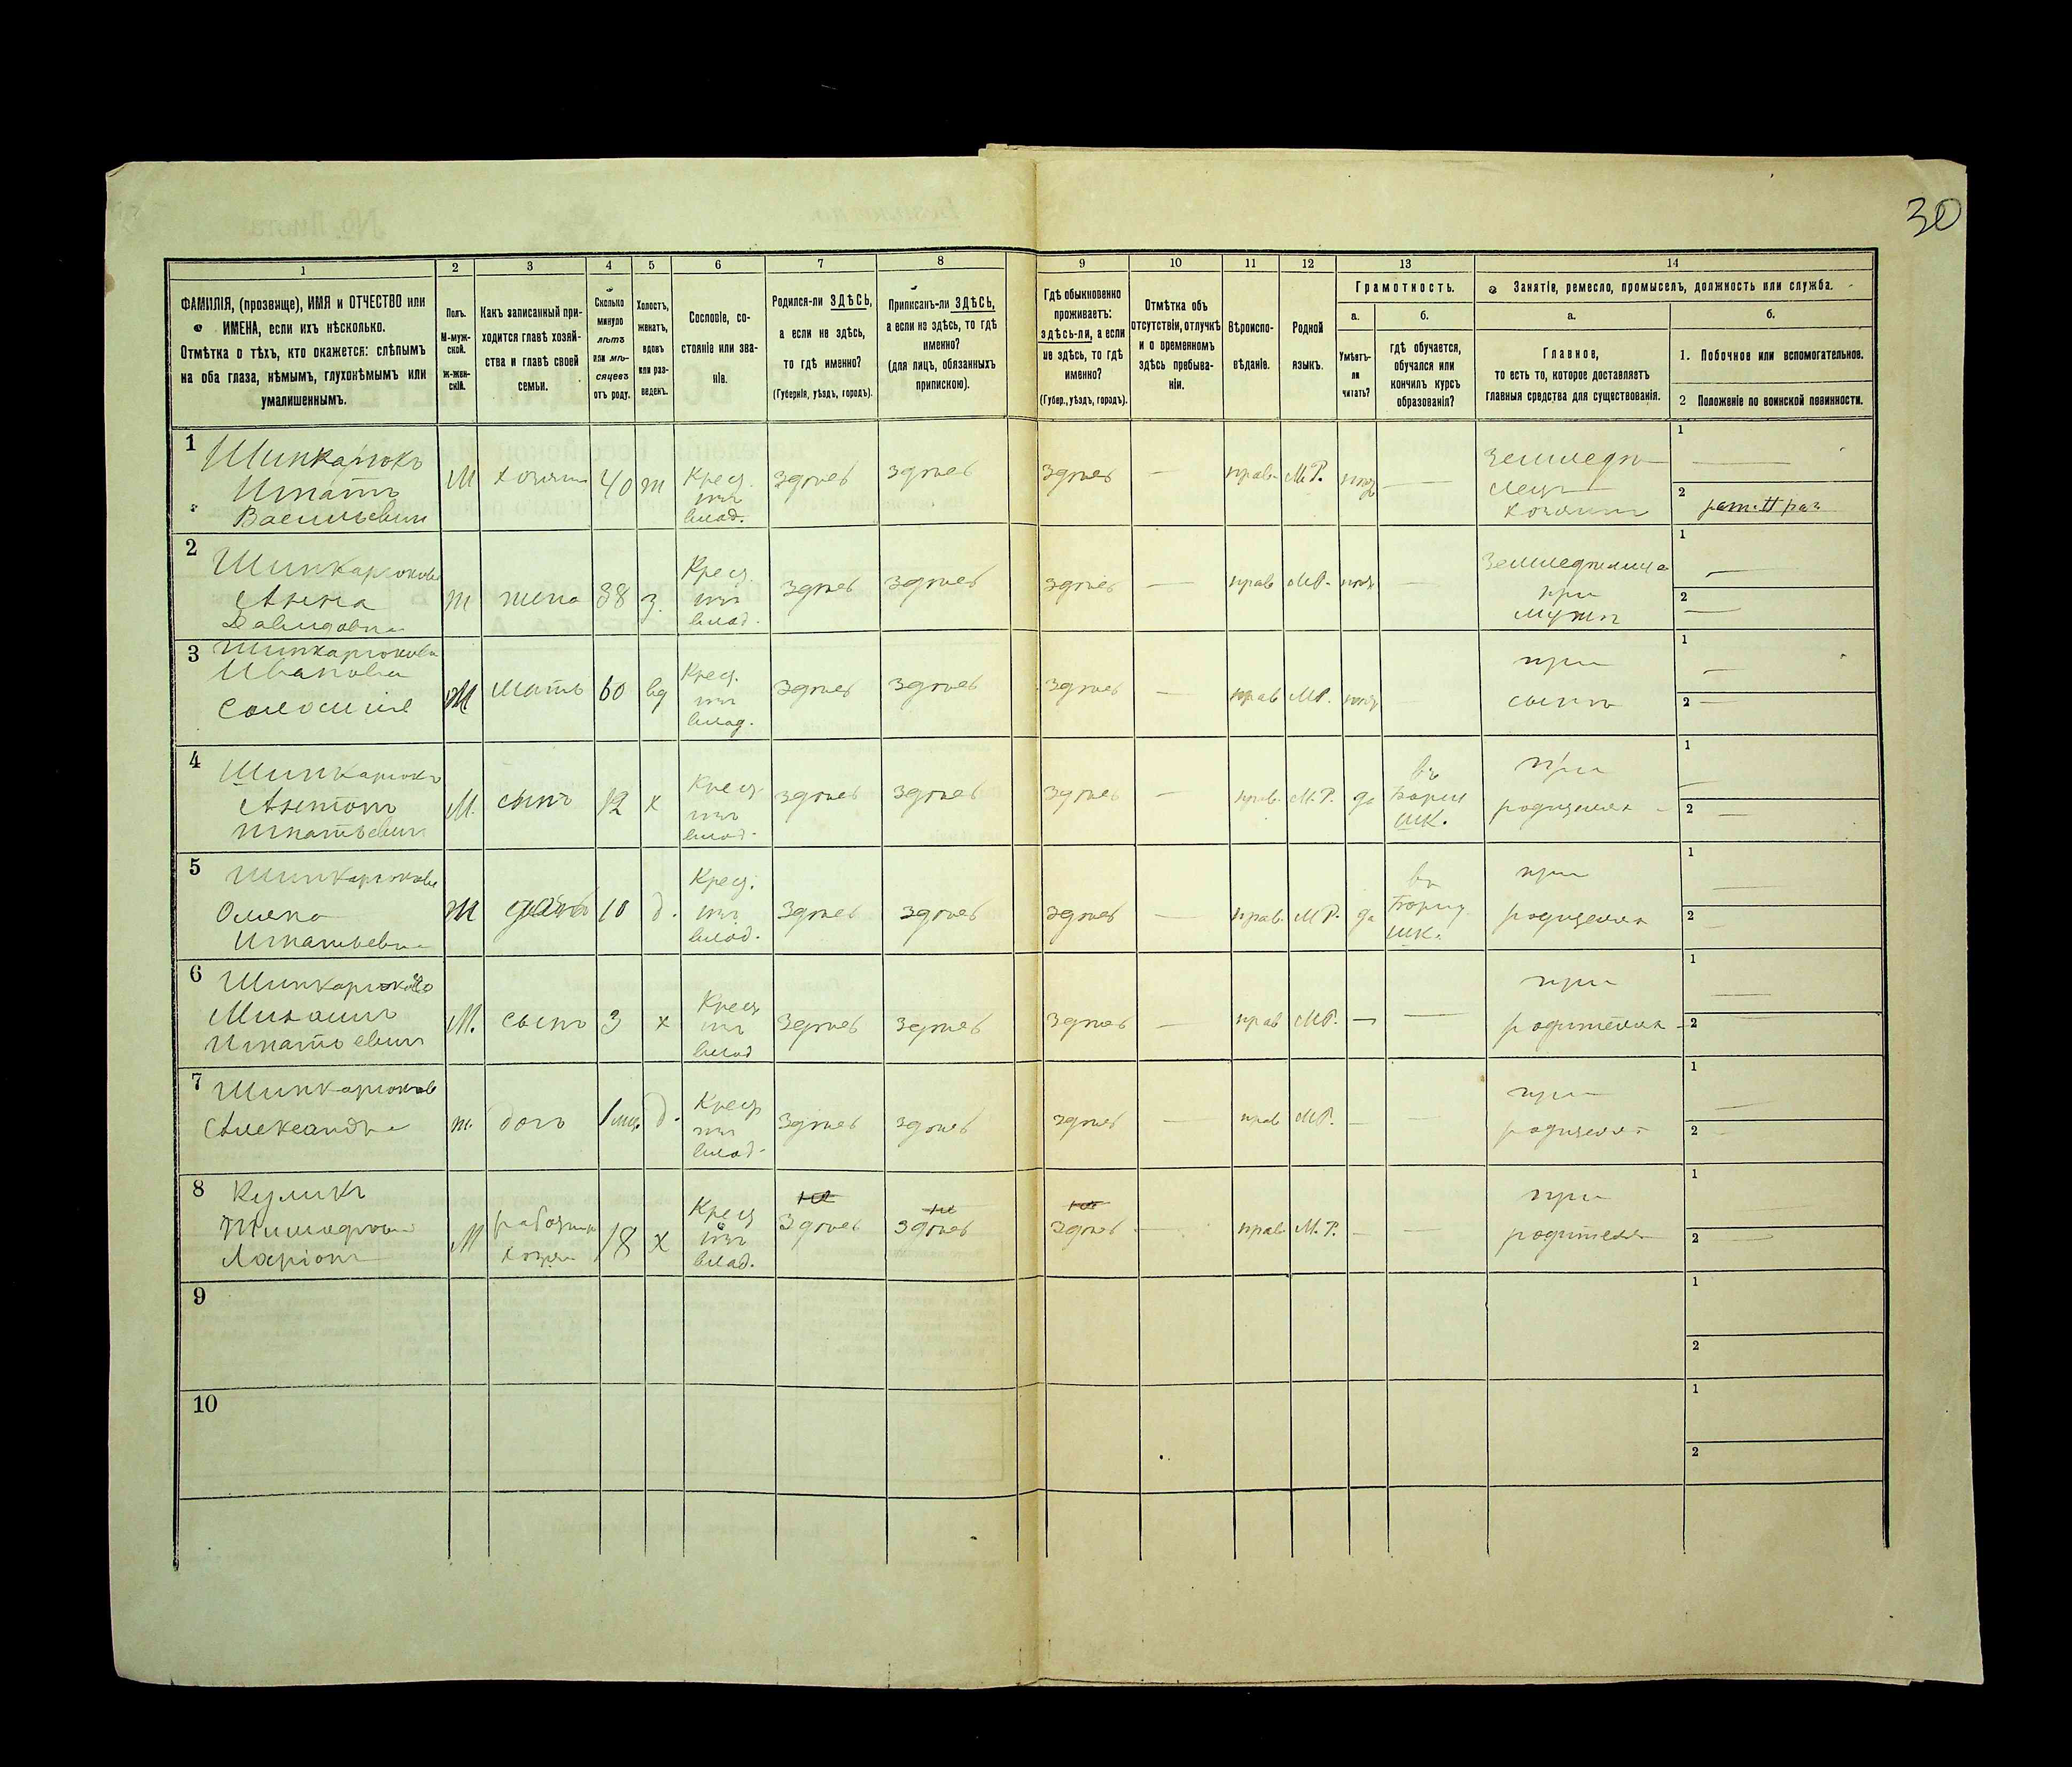 30
1 2 3 4 5 6 7 8 9 10 11 12 13 14
ФАМИЛІЯ, (прозвище), ИМЯ и ОТЧЕСТВО или
ИМЕНА, если ихъ нѣсколько.
Отмѣтка о тѣхъ, кто окажется: слѣпымъ
на оба глаза, нѣмымъ, глухонѣмымъ или
умалишеннымъ.
Полъ.
М-муж-
ской.
Ж-жен-
скій.
Какъ записанный при-
ходится главѣ хозяй-
ства и главѣ своей
семьи.
Сколько
минуло
лѣтъ
или мѣ-
сяцевъ
отъ роду.
Холостъ,
женатъ,
вдовъ
или раз-
веденъ.
Сословіе, со-
стояніе или зва-
ніе.
Родился-ли ЗДѢСЬ,
а если не здѣсь,
то гдѣ именно?
(Губернія, уѣздъ, городъ).
Приписанъ-ли ЗДѢСЬ,
а если не здѣсь, то гдѣ
именно?
(для лицъ, обязанныхъ
припискою).
Гдѣ обыкновенно
проживаетъ:
здѣсь-ли, а если
не здѣсь, то гдѣ
именно?
(Губер., уѣздъ, городъ).
Отмѣтка объ
отсутствіи, отлучкѣ
и о временномъ
здѣсь пребыва-
ніи.
Вѣроиспо-
вѣданіе.
Родной
языкъ.
Грамотность.
а.
Умѣетъ-
ли
читать?
б.
гдѣ обучается,
обучался или
кончилъ курсъ
образованія?
Занятіе, ремесло, промыселъ, должность или служба.
а.
Главное,
то есть то, которое доставляетъ
главныя средства для существованія.
б.
1. Побочное или вспомогательное.
2 Положеніе по воинской повинности.
1
Шинкарюкъ
Игнатъ
Васильевич
М
хозяин
40
ж
Крест.
влад.
здѣсь
здѣсь
здѣсь
—
прав.
М.Р.
—
Земледѣ
хозяин
1 —
2 рат. II раз
2
Шинкарюкова
Анна
Давидовна
ж
жена
38
з.
влад.
здѣсь
здѣсь
здѣсь
—
прав
МР.
—
при
мужѣ
1 —
2 —
3
Шинкарюкова
Ивановна
Соломия
Ж
мать
60
вд
влад.
здѣсь
здѣсь
здѣсь
—
прав
МР.
при
сынѣ
1 —
2 —
4
Шинкарюкъ
Антонъ
Игнатьевич
М.
сынъ
12
х
влад.
здѣсь
здѣсь
здѣсь
—
прав.
М.Р.
да
въ
шк.
при
1 —
2 —
5
Шинкарюкова
Олена
Игнатьевна
Ж
10
д.
влад.
здѣсь
здѣсь
здѣсь
—
прав.
МР.
да
въ
шк.
при
1 —
2 —
6
Михаилъ
Игнатьевич
М.
сынъ
3
х
влад
здѣсь
здѣсь
здѣсь
—
прав
МР.
—
—
при
родителях
1 —
2 —
7
Александра
ж.
дочь
1 мѣс.
д.
влад.
здѣсь
здѣсь
здѣсь
—
прав
МР.
—
—
при
1 —
2 —
8
Куликъ
М
18
х
влад.
не
здѣсь
не
здѣсь
не
здѣсь
—
прав
М.Р.
—
—
при
1
2 —
9
1
2
10
1
2